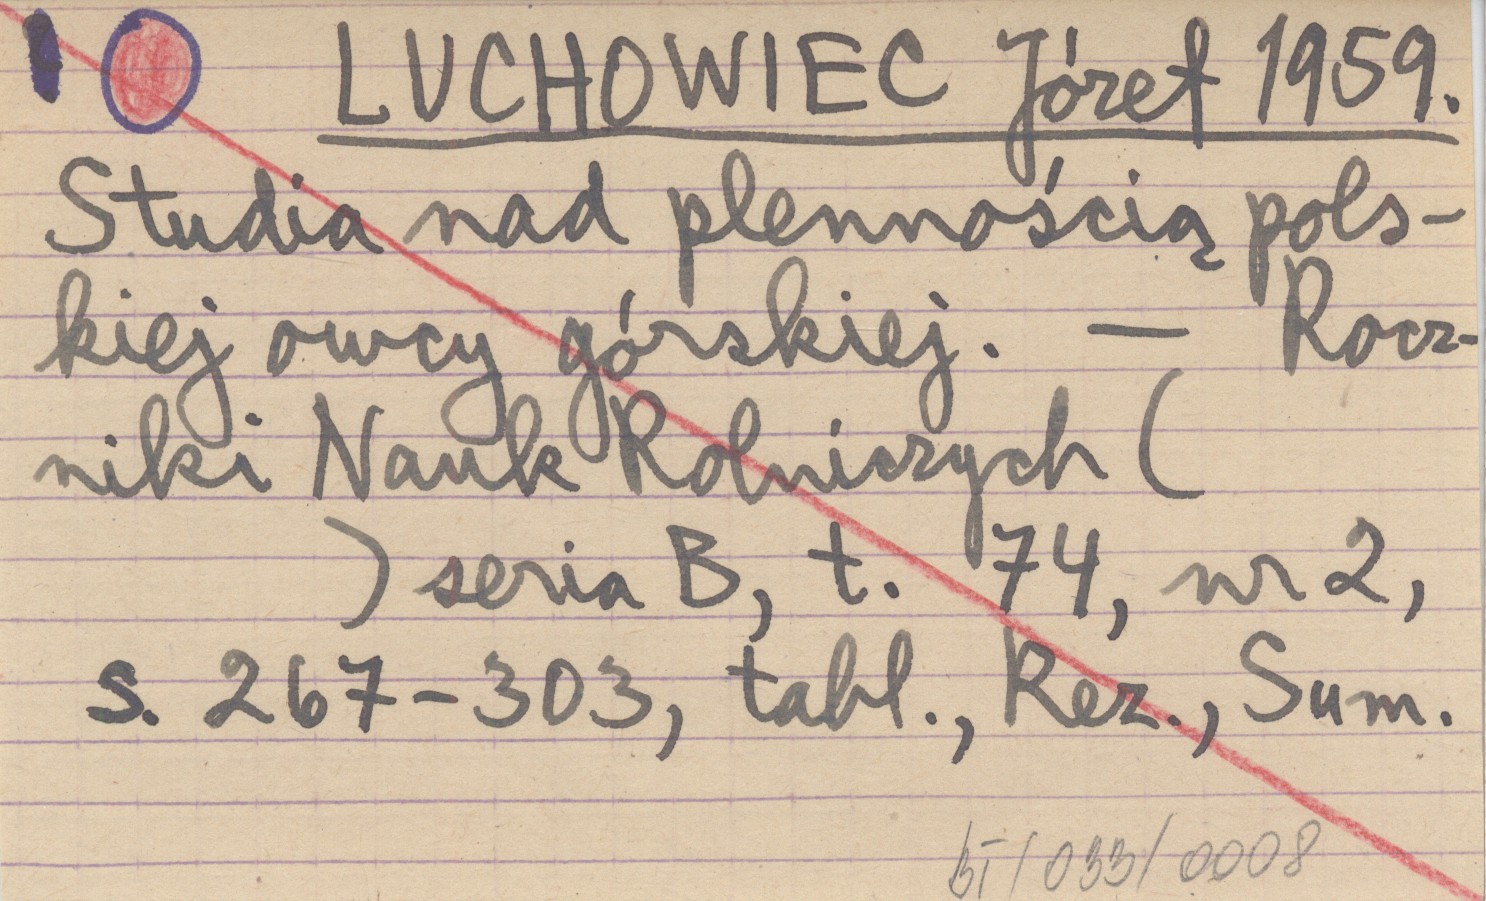 LUCHOWIEC Józef 1959.
Studia nad plennością pols-
kiej owcy górskiej. — Rocz-
niki Nauk Rolniczych (
) seria B, t. 74, nr 2,
s. 267-303, tabl., Rez., Sum.
BI/033/0008